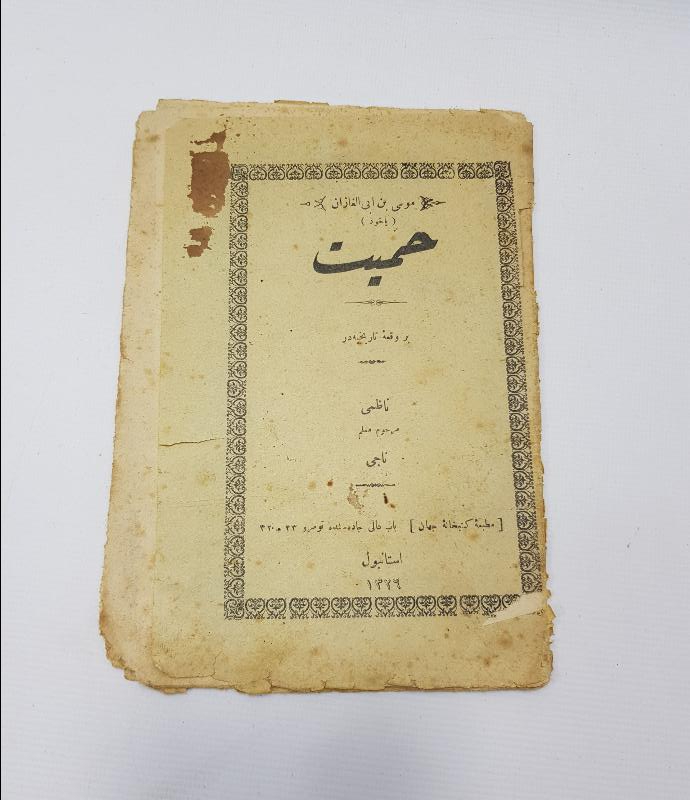 موسى بن ابى الغازان
( ياخود )
حميت
بر وقعهٔ تاريخيه‌در
ناظمى
مرحوم معلم
ناجى
[ مطبعهٔ كتبخانهٔ جهان ] باب عالى جاده‌سنده نومرو
استانبول